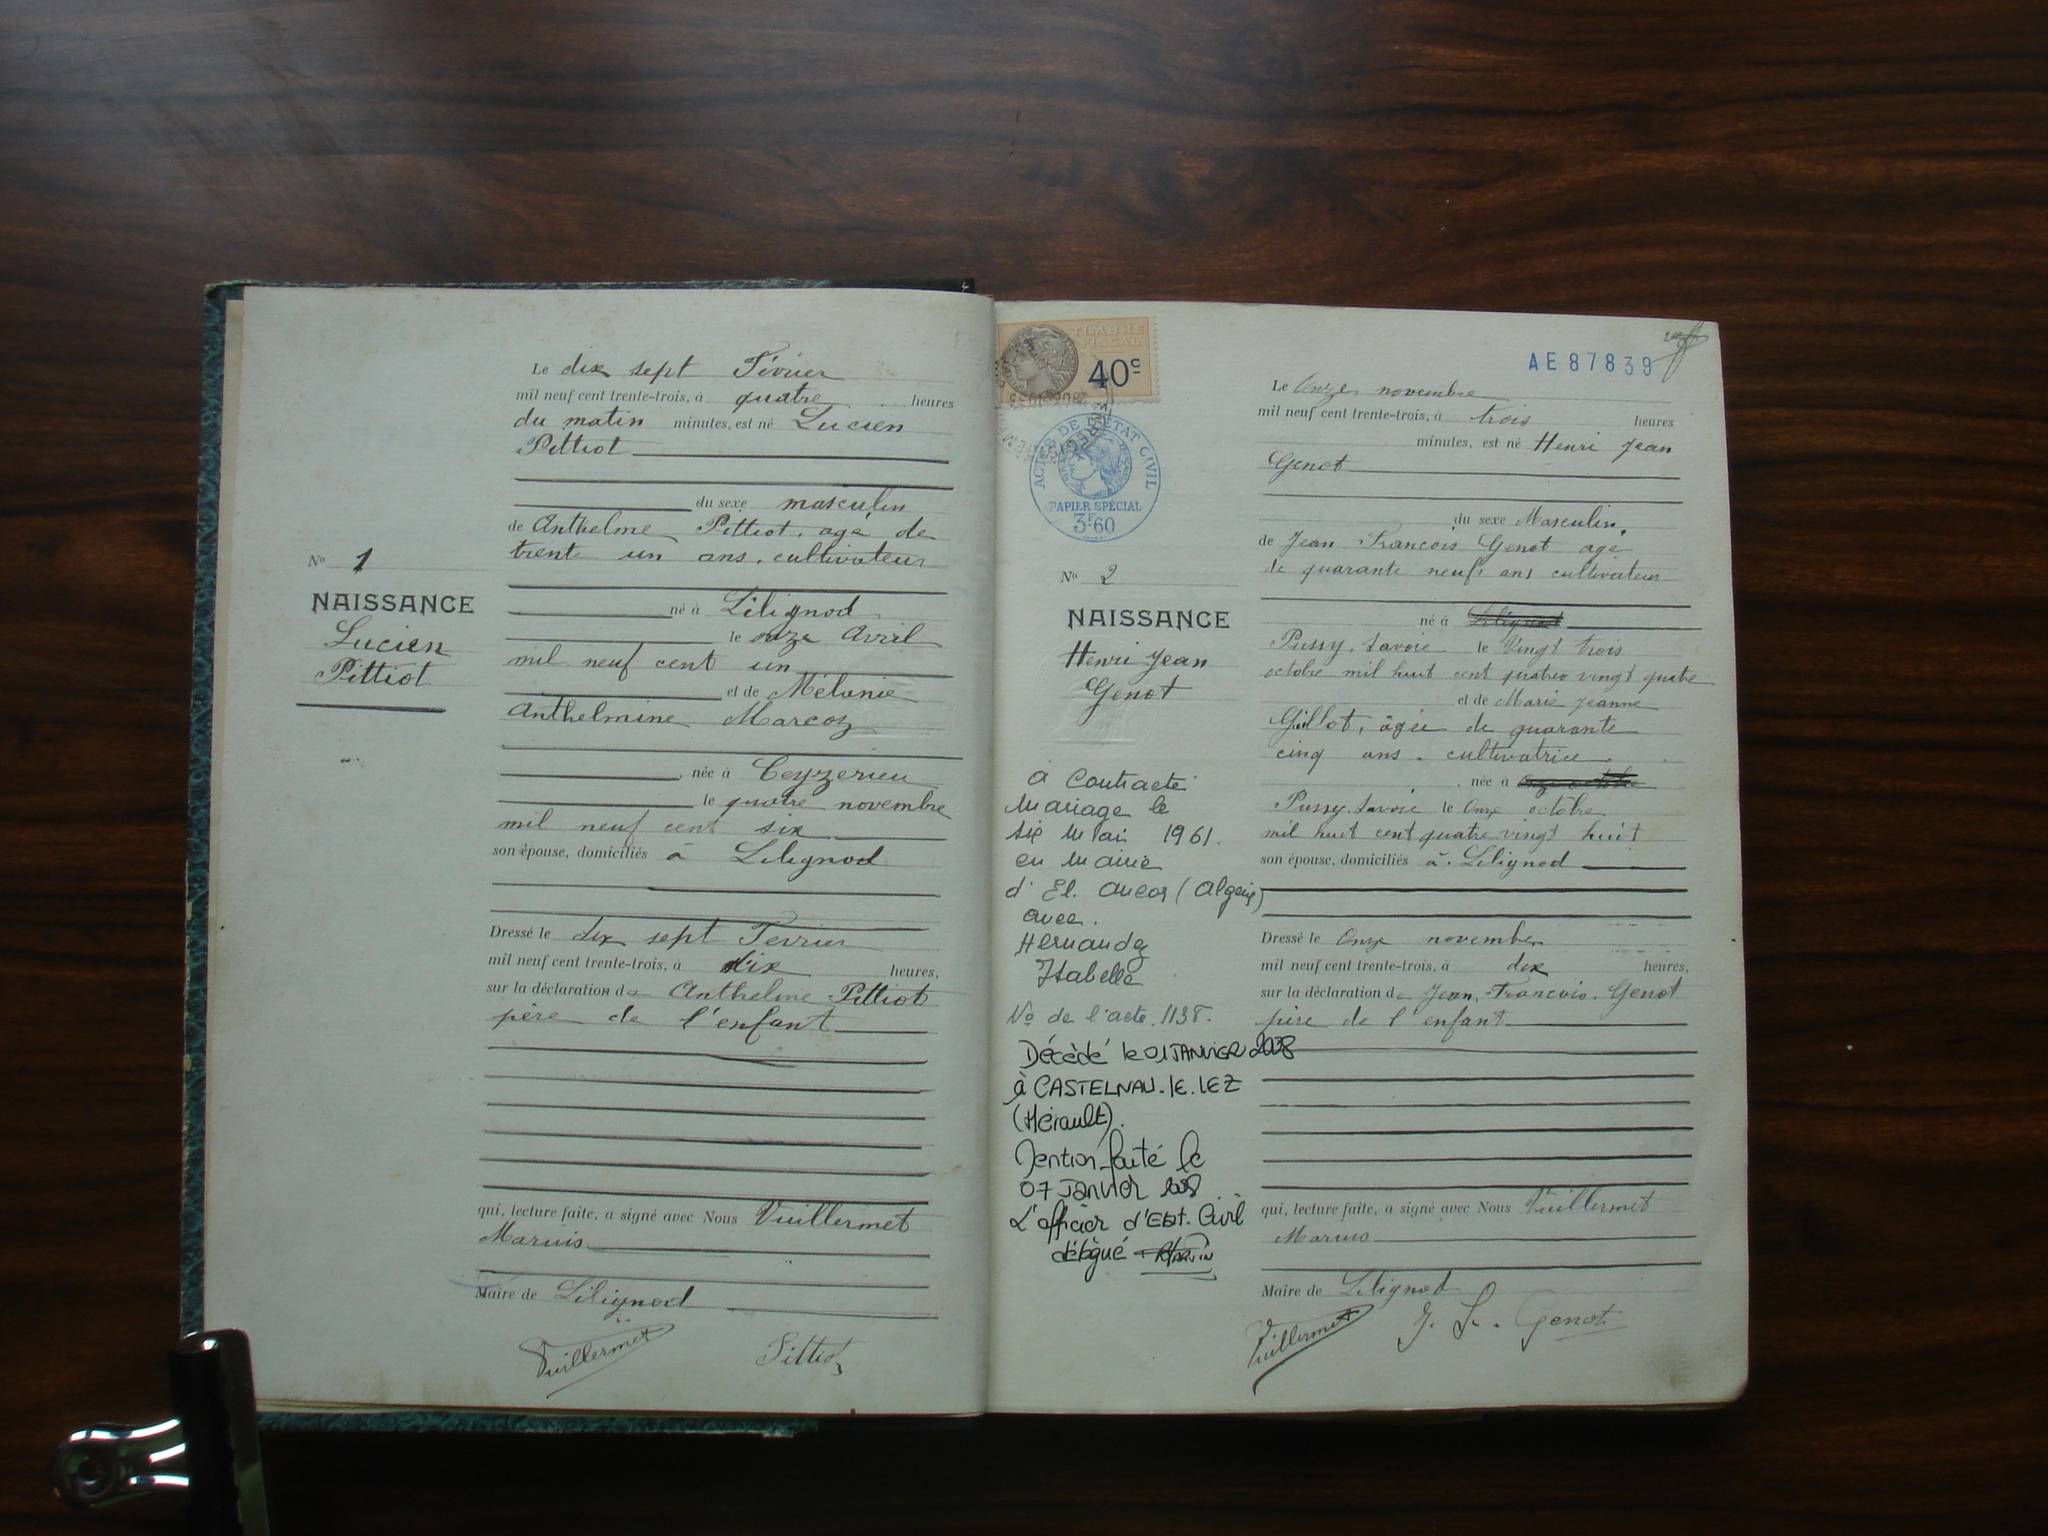 Le dix sept Février
mil neuf cent trente-trois, à quatre heures
du matin minutes, est né Lucien
Pittiot
du sexe masculin
de Anthelme Pittiot, agé de
trente un ans, cultivateur
né à Lilignod
le onze Avril
mil neuf cent un
et de Mélanie
Anthelmine Marcoz
née à Ceyzerieu
le quatre novembre
mil neuf cent six
son épouse, domiciliés à Lilignod
Dressé le dix sept Février
mil neuf cent trente-trois, à dix heures,
sur la déclaration de Anthelme Pittiot
père de l'enfant
qui, lecture faite, a signé avec Nous Vuillermet
Marius
Maire de Lilignod
Vuillermet Pittiot
No 1
NAISSANCE
Lucien
Pittiot
TIMBRE
FISCAL
40c
ACTES DE L'ETAT CIVIL
PAPIER SPÉCIAL
3F60
AE87839
No 2
NAISSANCE
Henri Jean
Genot
a Contracté
Mariage le
six Mai 1961.
en Mairie
d'El. Ancor (Algérie)
avec.
Hernandez
Isabelle
No de l'acte. 1138.
Décèdé le 01 JANVIER 2008
à CASTELNAU.lE.lEZ
(Hérault).
Mention faite le
07 JANVIER 2008
L'officier d'Etat. Civil
délégué
Le Onze novembre
mil neuf cent trente-trois, à trois heures
minutes, est né Henri Jean
Genot
du sexe Masculin.
de Jean François Genot agé
de quarante neufs ans cultivateur
né à Lilignod
Pussy. Savoie le Vingt trois
octobre mil huit cent quatres vingt quatre
et de Marie Jeanne
Gillot, âgée de quarante
cinq ans. cultivatrice.
née à onze octobre
Pussy. Savoie le Onze octobre
mil huit cent quatre vingt huit
son épouse, domiciliés à. Lilignod
Dressé le Onze november
mil neuf cent trente-trois, à dix heures,
sur la déclaration de Jean, François. Genot
père de l'enfant
qui, lecture faite, a signé avec Nous Vuillermet
Marius
Maire de Lilignod
Vuillermet J. F. Genot